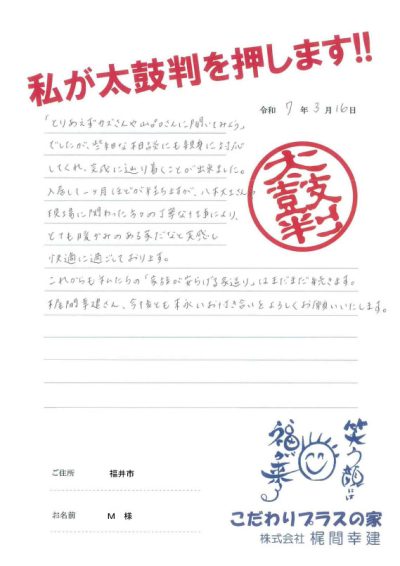 私が太鼓判を押します!!
令和 7 年 3 月 16 日
「とりあえずカズさんや山口さんに聞いてみよう」
でしたが、些細な相談にも親身に対応
してくれ、完成に辿り着くことが出来ました。
入居して一ヶ月ほどが経ちますが、八木大工さん
現場に関わった方々の丁寧な仕事により、
とても暖かみのある家だなと実感し
快適に過ごしております。
これからも私たちの「家族が安らげる家造り」はまだまだ続きます。
梶間幸建さん、今後とも末永いお付き合いをよろしくお願いいたします。
太鼓判
笑う顔には
福が来る
ご住所 福井市
お名前 M 様
こだわりプラスの家
株式会社 梶間幸建